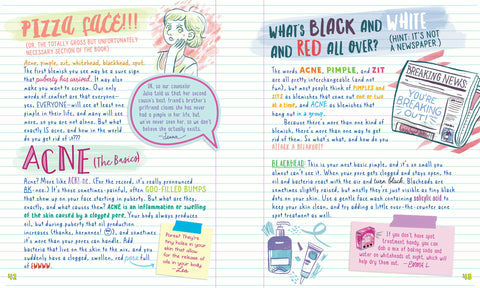 PIZZA FACE!!!
(OR, THE TOTALLY GROSS BUT UNFORTUNATELY
NECESSARY SECTION OF THE BOOK)
Acne, pimple, zit, whitehead, blackhead, spot.
The first blemish you see may be a sure sign
that puberty has arrived. It may also
make you want to scream. Our only
words of comfort are that everyone—
yes, EVERYONE—will see at least one
pimple in their life, and many will see
more, so you are not alone. But what
exactly IS acne, and how in the world
do you get rid of it???
OK, so our counselor
Julie told us that her second
cousin's best friend's brother's
girlfriend claims she has never
had a pimple in her life, but
we've never seen her, so we don't
believe she actually exists.
ACNE (The Basics)
Acne? More like ACK-ne. (For the record, it's really pronounced
AK-nee.) It's those sometimes-painful, often GOO-FILLED BUMPS
that show up in your face starting in puberty. But what are they,
exactly, and what causes them? ACNE is an inflammation or swelling
of the skin caused by a clogged pore. Your body always produces
oil, but during puberty that oil production
increases (thanks, hormones!), and sometimes
it's more than your pores can handle. Add
bacteria that live on the skin to the mix, and you
suddenly have a clogged, swollen, red pore full
of EWWWW.
Pores? They're
tiny holes in your
skin that allow
for the release
of oils in your body.
42
WHAT'S BLACK AND WHITE
AND RED ALL OVER?
(HINT: IT'S NOT
A NEWSPAPER.)
The words ACNE, PIMPLE, and ZIT
are all pretty interchangeable (and not
fun), but most people think of PIMPLES and
ZITS as blemishes that come out one or two
at a time, and ACNE as blemishes that
hang out in a group.
Because there's more than one kind of
blemish, there's more than one way to get
rid of them. So what's what, and how do you
ATTACK A BREAKOUT?
BREAKING NEWS:
YOU'RE
BREAKING
OUT!
BLACKHEAD: This is your most basic pimple, and it's so small you
almost can't see it. When your pore gets clogged and stays open, the
oil and bacteria react with the air and turn black. Blackheads are
sometimes slightly raised, but mostly they're just visible as tiny black
dots on your skin. Use a gentle face wash containing salicylic acid to
keep your skin clean, and try adding a little over-the-counter acne
spot treatment as well.
If you don't have spot
treatment handy, you can
dab a mix of baking soda and
water on whiteheads at night, which will
help dry them out. —EMMA L
43